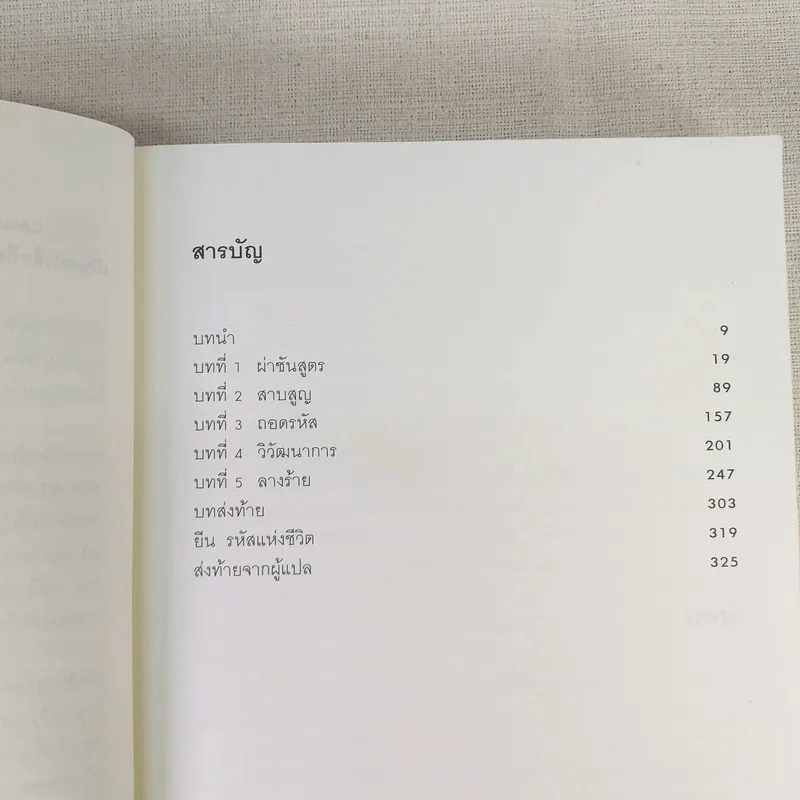 สารบัญ
บทนำ 9
บทที่ 1 ผ่าชันสูตร 19
บทที่ 2 สาบสูญ 89
บทที่ 3 ถอดรหัส 157
บทที่ 4 วิวัฒนาการ 201
บทที่ 5 ลางร้าย 247
บทส่งท้าย 303
ยีน รหัสแห่งชีวิต 319
ส่งท้ายจากผู้แปล 325